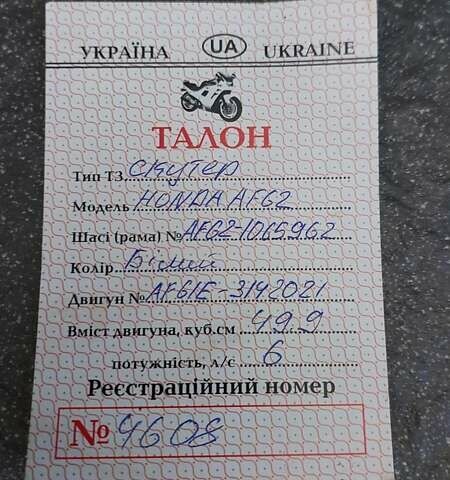 УКРАЇНА UA UKRAINE
ТАЛОН
Тип ТЗ скутер
Модель HONDA AF62
Шасі (рама) № AF62-1065962
Колір Білий
Двигун № AF61E-3142021
Вміст двигуна, куб.см 49.9
потужність, л/с 6
Реєстраційний номер
№ 4608